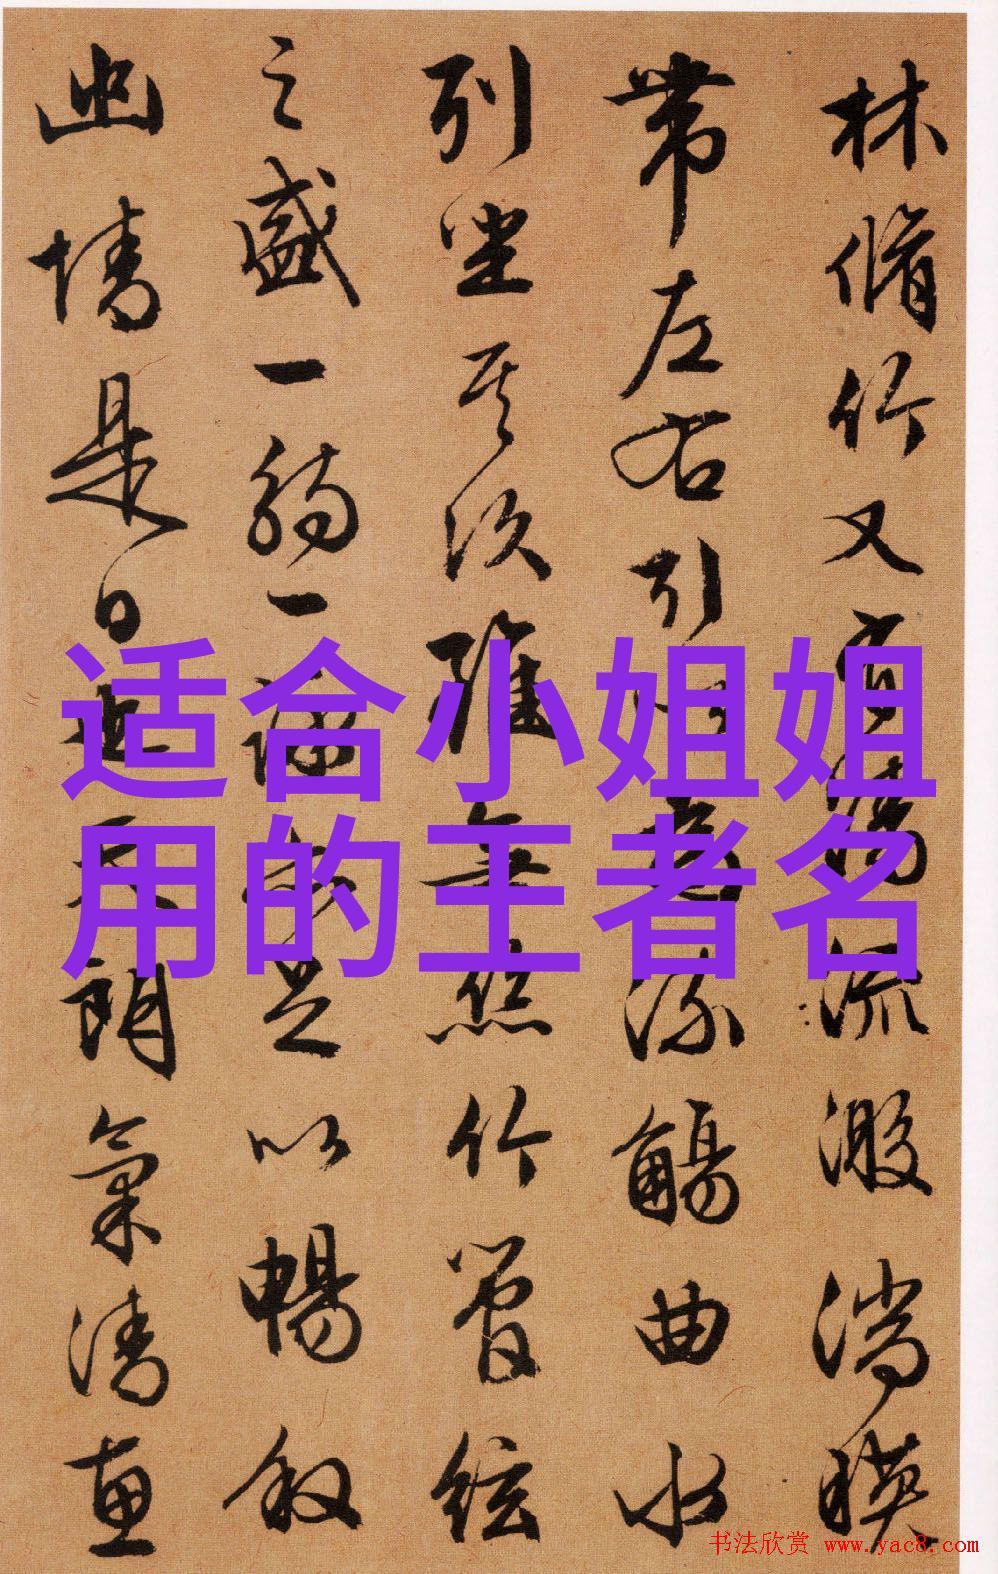 林脩竹又有清流激湍映
带左右引以为流觞曲水
列坐其次虽无丝竹管弦
之盛一觞一咏亦足以畅叙
幽情是日也天朗气清惠
适合小姐姐
用的王者名
书法欣赏 www.yac8.com